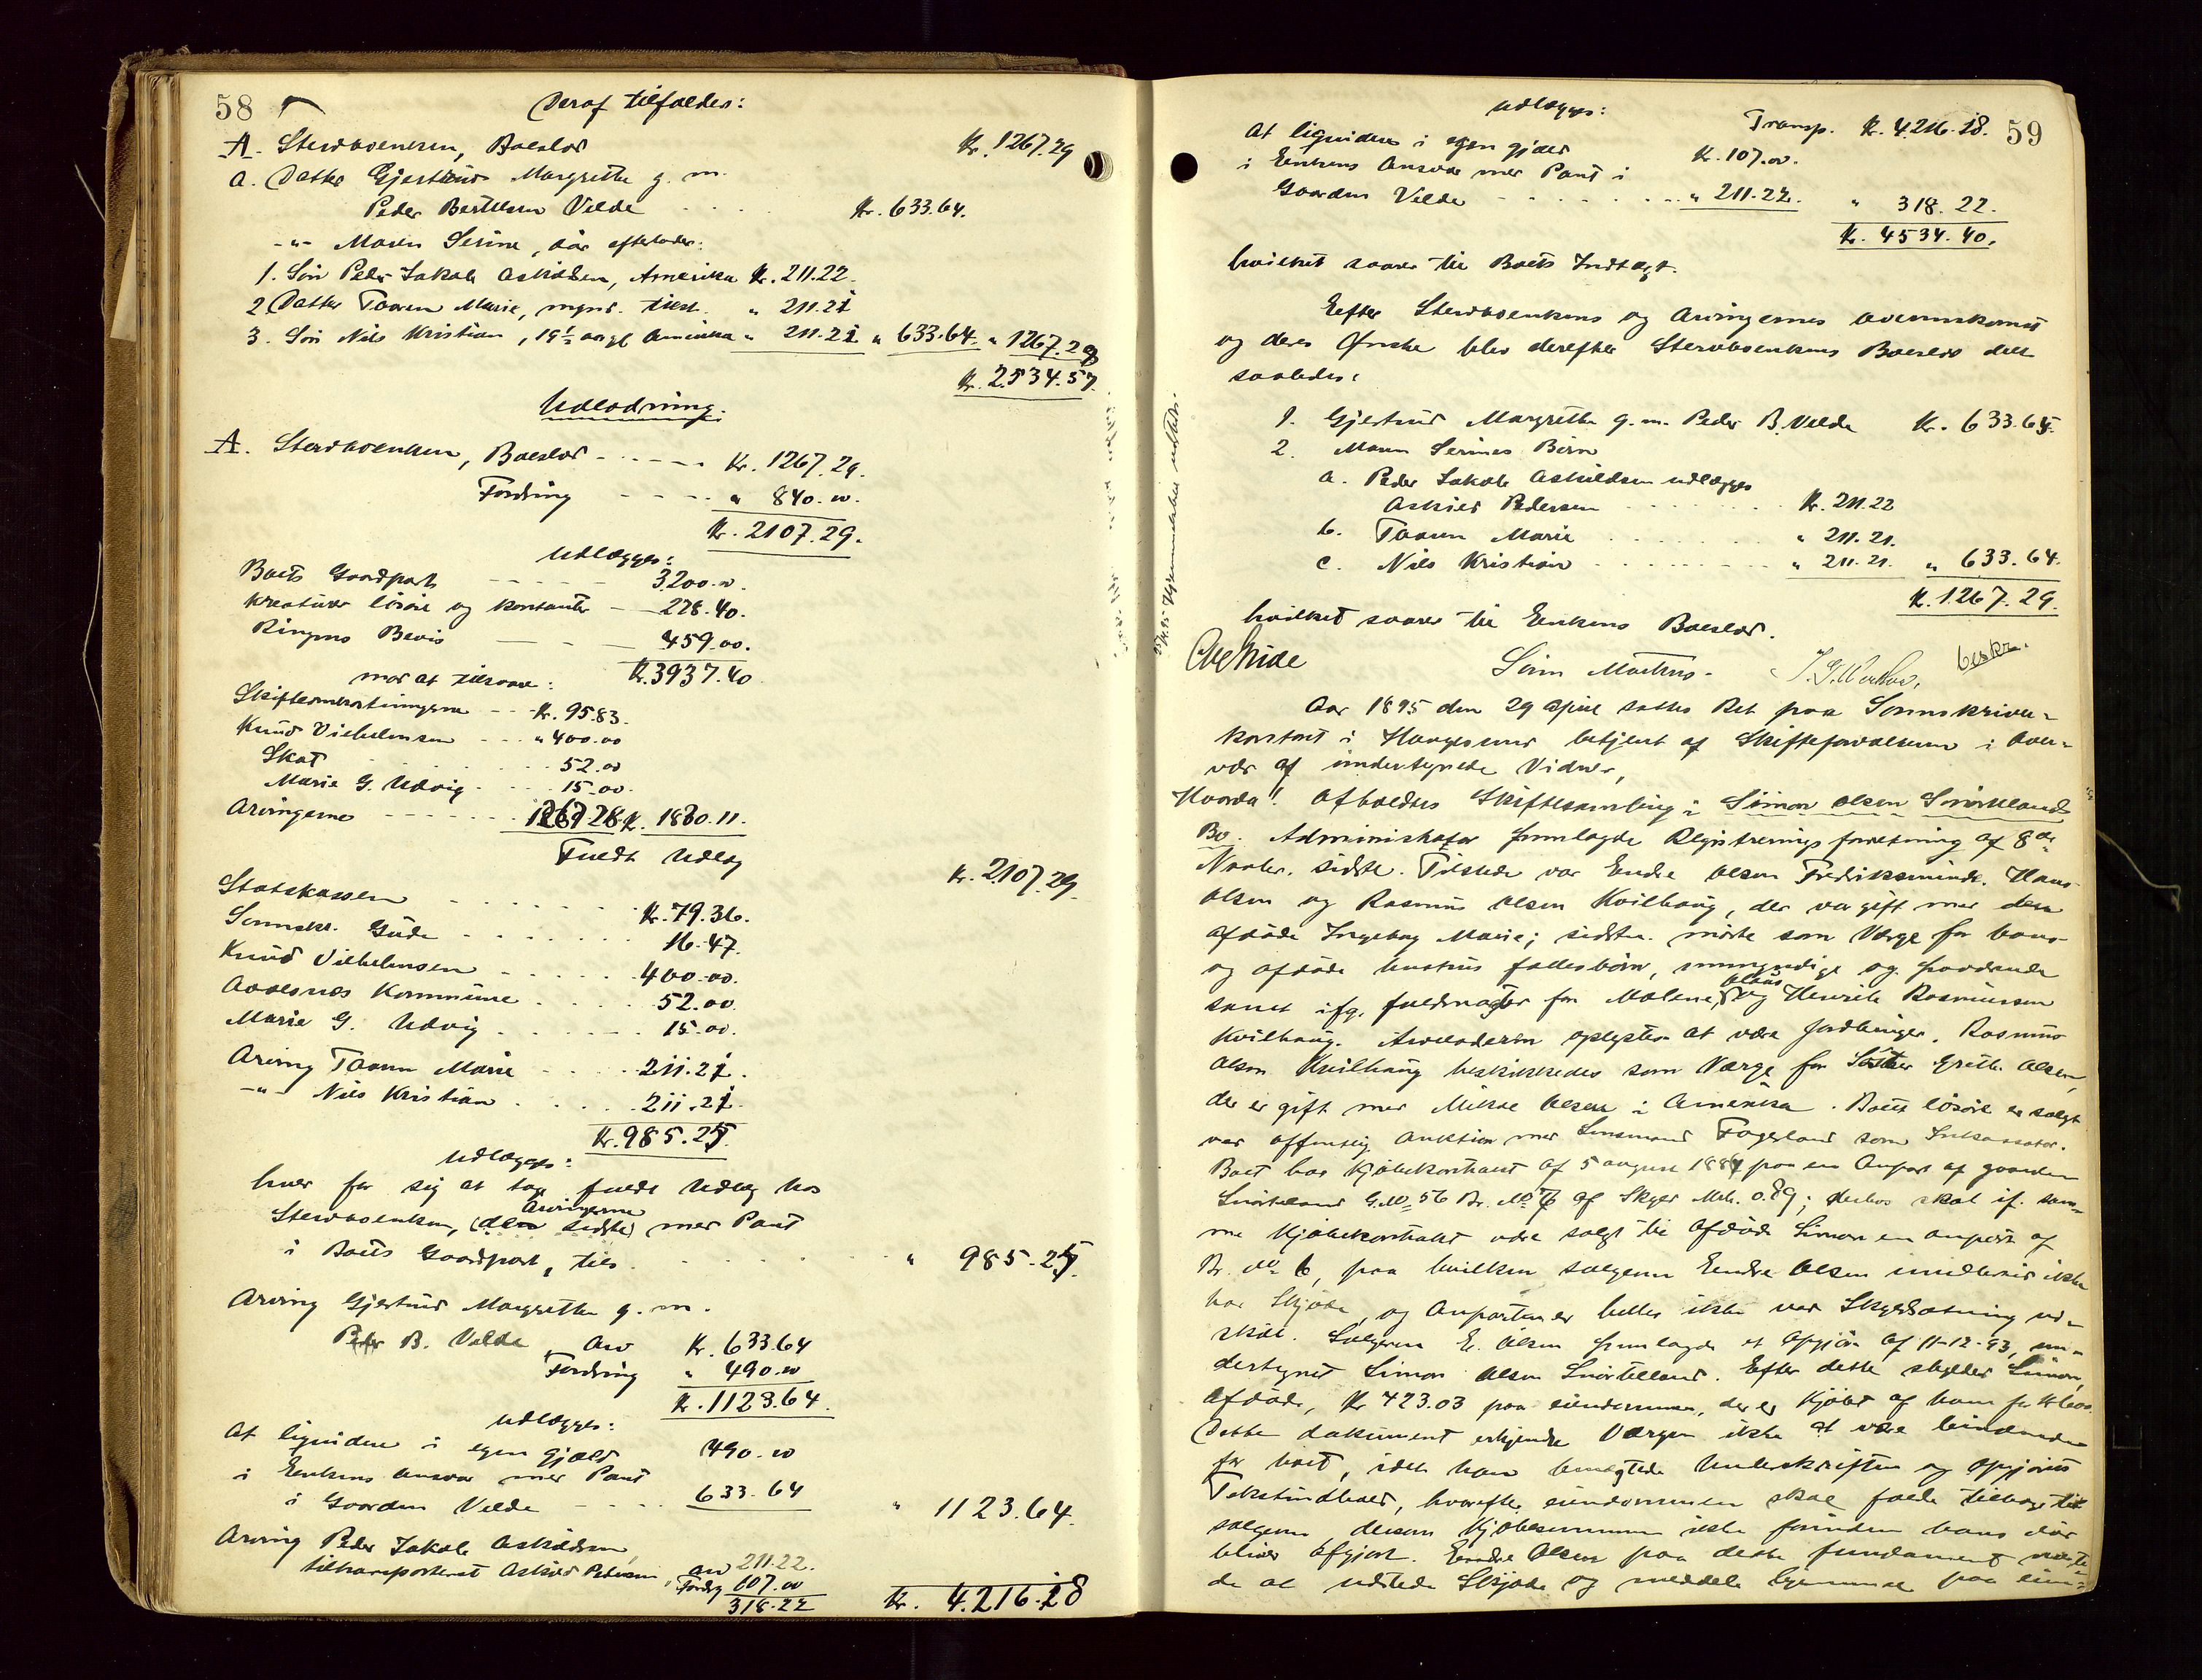 58
Deraf tilfalder:
A. Stervboenken, Boeslod Kr. 1267.29
a. Datter Gjertrud Margrethe g. m.
Peder Bertelsen Velde Kr. 633.64.
-"- Maren Serine, død efterlader:
1. Søn Peder Jakob Askildsen, Amerika Kr. 211.22.
2. Datter Taaren Marie, mynd. tilst. " 211.21
3. Søn Nils Kristian, 19½ aar gl Amerika " 211.21 " 633.64. " 1267.29
Kr. 2534.57.
Udlodning.
A. Stervboenken, Boeslod Kr. 1267.29.
Fordring " 840.00.
Kr. 2107.29.
Udlægges:
Boets Gaardpart 3200.00
Kreaturer løsøre og kontanter 278.40.
Ringens Bevis 459.00.
Kr. 3937.40
mod at tilsvare:
Skifteomkostningerne Kr. 95.83.
Knud Vilhelmsen " 400.00
Skat 52.00
Marie G. Udvig 15.00.
Arvingerne 1267.28 Kr. 1830.11.
Fuldt Udlæg Kr. 2107.29
Statskassen Kr. 79.36.
Sorenskr. Gude 16.47.
Knud Vilhelmsen 400.00.
Avaldsnes Kommune 52.00.
Marie G. Udvig 15.00.
Arving Taaren Marie 211.21.
-"- Nils Kristian 211.21.
Kr. 985.25.
Udlægges:
hver for sig at tage fuldt Udlæg hos
Arvingerne
Stervboenken, (den sidste) med Pant
i Boets Gaardpart, tils. " 985.25.
Arving Gjertrud Margrethe g. m.
Peder B. Velde, Arv Kr. 633.64
Fordring " 490.00
Kr. 1123.64.
Udlægges:
At liquidere i egen Gjæld 490.00
i Enkens Ansvar med Pant
i Gaarden Velde 633.64 " 1123.64.
Arving Peder Jakob Askildsen,
tiltransporteret Askild Pedersen, arv 211.22.
Fordrg 107.00
318.22 Kr. 4.216.18
59
Udlægges: Transp. Kr. 4.216.18.
At liquidere i egen gjæld Kr. 107.00.
i Enkens Ansvar med Pant i
Gaarden Velde " 211.22. " 318.22.
Kr. 4534.40.
hvilket svarer til Boets Indtægt.
Efter Stervboenkens og Arvingernes overenskomst
og deres Ønske blev derefter Stervboenkens Boeslod delt
saaledes:
1. Gjertrud Margrethe g. m. Peder B. Velde Kr. 633.65.
2. Maren Serines Børn
a. Peder Jakob Askildsen udlægges
Askild Pedersen Kr. 211.22
b. Taaren Marie " 211.21.
c. Nils Kristian " 211.21. " 633.64.
Kr. 1267.29.
hvilket svarer til Enkens Boeslod.
Søren Martens. beskr.
Aar 1895 den 29 April sattes Ret paa Sorenskriver-
kontoret i Haugesund betjent af Skifteforvalteren i Over-
vær af undertegnede Vidner,
Hvorda! Afholdtes Skiftesamling i Simon Olsen Snørteland
Bo. Administrator fremlagde Registreringsforretning af 8de
Novbr. sidste. Tilstede var Endre Olsen Fredriksminde. Hans
Olsen og Rasmus Olsen Kvilhaug, der var gift med den
afdøde Ingeborg Marie; sidstn. mødte som Værge for hans
og afdøde hustrus fællesbørn, umyndige og fraværende
Olaus
samt ifg. fuldmagter for Malene, og Henrik Rasmussen
Kvilhaug. Arveladeren oplystes at være Jordbruger. Rasmus
Olsen Kvilhaug beskikkedes som Værge for Søster Grethe Olsen,
der er gift med Mikal Olsen i Amerika. Boets løsøre er solgt
ved offentlig Auktion med Lensmand Fagerland som Inkassator.
Boet har Kjøbekontrakt af 5 august 1887 paa en Anpart af gaarden
Snørteland G. No 56 Br. No 6 af Skyld Mrk. 0.89; derhos skal if. sam-
me Kjøbekontrakt være solgt til Afdøde Simon en anpart af
Br. No 6, paa hvilken sælgeren Endre Olsen imidlertid ikke
har Skjøde, og Anparten er heller ikke ved Skyldsætning ud-
skilt. Sælgeren E. Olsen fremlagde et Opgjør af 11-12-93, un-
dertegnet Simon Olsen Snørtelland. Efter dette skylder Simon,
Afdøde, Kr 423.03 paa eiendommen, der er Kjøbt af ham for
Dette dokument erkjendte Værgen ikke at være bindende
for boet, idet han benegtede Underskriften og Opgjørets
Tekstindhold, hvorefter eiendommen skal falde tilbage til
sælgeren, dersom Kjøbesummen ikke forinden hans død
bliver opgjort. Endre Olsen paa dette fundament nægte-
de at udstede Skjøde og meddele hjemmel paa eien-